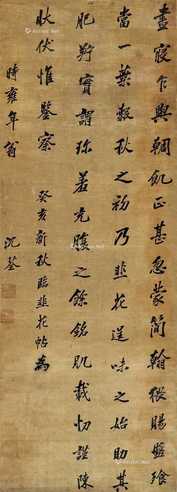 晝寢乍興輖飢正甚忽蒙簡翰猥賜盤飧
當一葉報秋之初乃韭花逞味之始助其
肥羜實謂珍羞充腹之餘銘肌載切謹陳
狀伏惟鑒察 癸亥新秋臨韭花帖為
時雍年翁 沈荃